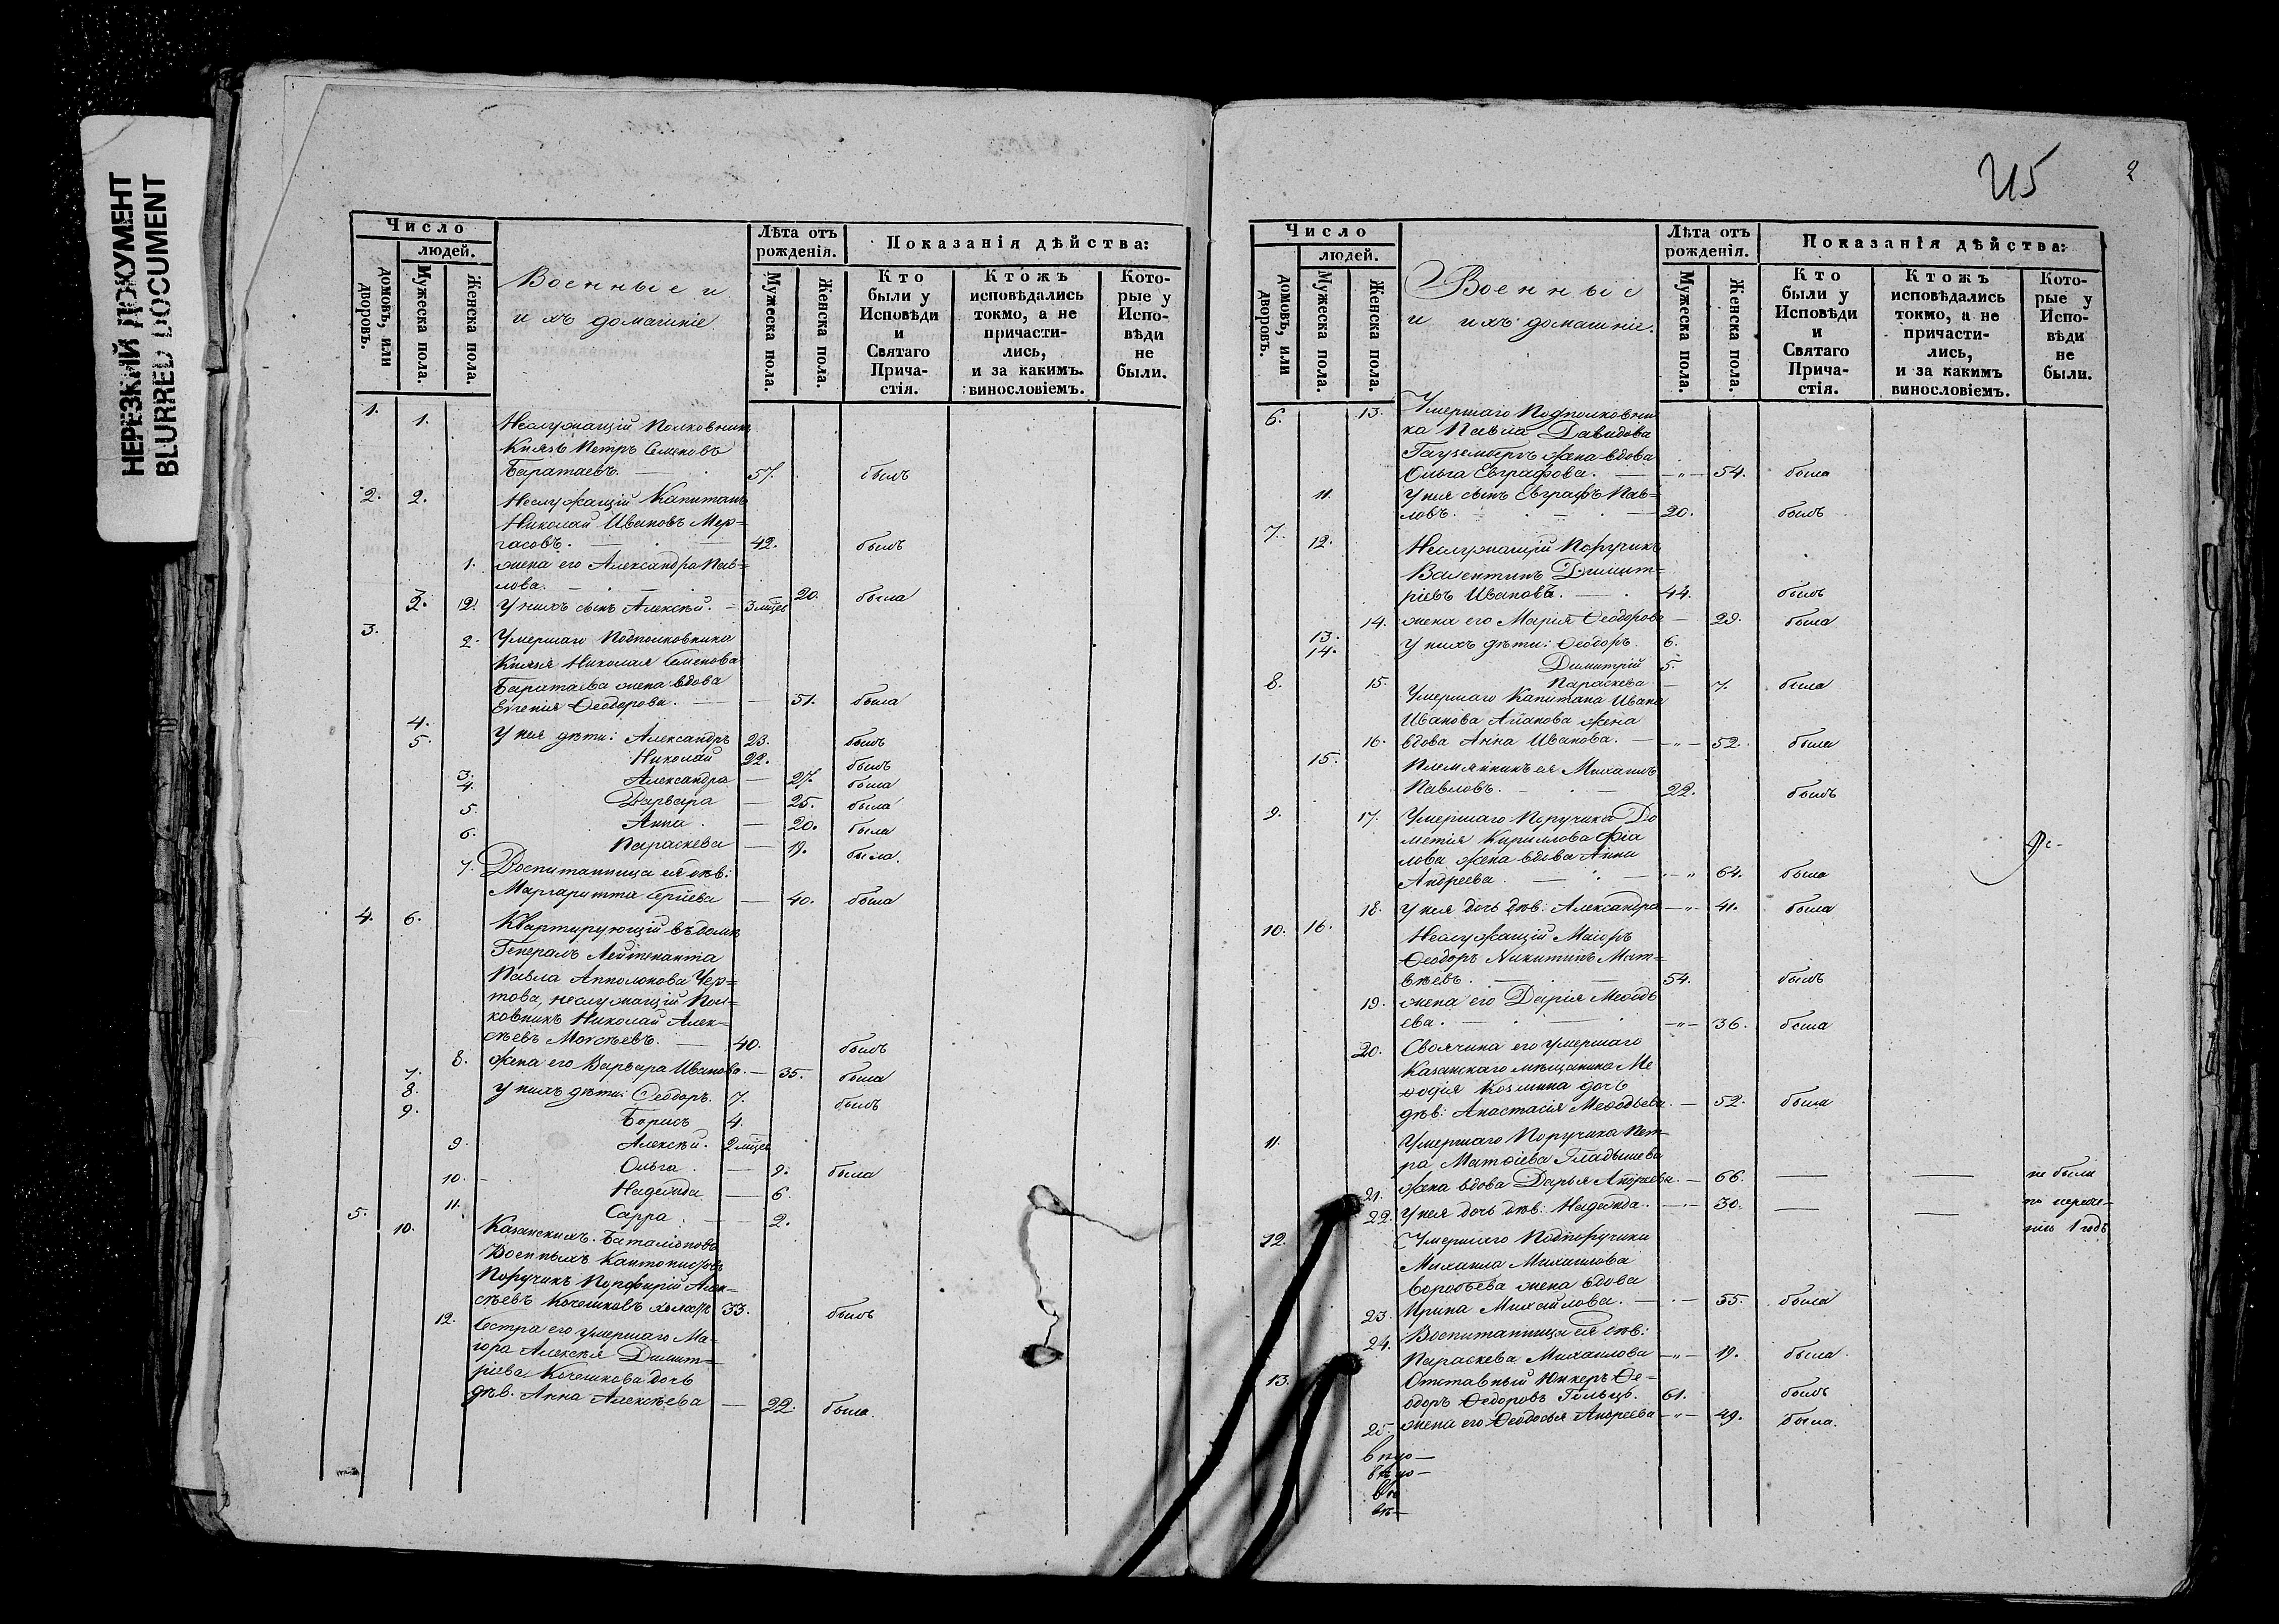 НЕРЕЗКИЙ ДОКУМЕНТ
BLURRED DOCUMENT
Число
людей.
домовъ, или дворовъ.
Мужеска пола.
Женска пола.
Военные и
ихъ домашніе
Лѣта отъ рожденія.
Мужеска пола.
Женска пола.
Показанія дѣйства:
Кто были у Исповѣди и Святаго Прича-стія.
Ктожъ исповѣдались токмо, а не причасти-лись, и за какимъ винословіемъ.
Кото-рые у Испо-вѣди не были.
1. 1. Неслужащій Полковникъ
Князь Петръ Семеновъ
Баратаевъ. — 57. былъ
2. 2. Неслужащій Капитанъ
Николай Ивановъ Мер=
гасовъ. — 42. былъ
1. жена его Александра Пав=
лова. — 20. была
3. у нихъ сынъ Алексѣй. — 3 мѣсц
3. 2. Умершаго Подполковника
Князя Николая Семенова
Баратаева жена вдова
Евгенія Ѳеодорова. — 51. была
4. у нея дѣти: Александръ 23. былъ
5. Николай 22. былъ
3. Александра — 27. была
4. Варвара — 25. была
5. Анна. — 20. была
6. Параскева — 19. была.
7. Воспитанница ея дѣв:
Маргаритта Сергѣева — 40. была
4. 6. Квартирующій въ домѣ
Генералъ Лейтенанта
Павла Апполонова Чер=
това, неслужащій Пол=
ковникъ Николай Алек=
сѣевъ Моисѣевъ. — 40. былъ
8. жена его Варвара Иванова. — 35. была
7. у нихъ дѣти: Ѳеодоръ. 7. былъ
8. Борисъ 4.
9. Алексѣй. 2 мѣсц
9. Ольга. — 9. была
10. Надежда — 6.
11. Сарра. — 2.
5. 10. Казанскихъ Баталіоновъ
Военныхъ Кантонистовъ
Поручикъ Порфирій Алек=
сѣевъ Кочешковъ холостъ 33. былъ
12. Сестра его умершаго Ма=
іора Алексѣя Димит=
ріева Кочешкова дочь
дѣв. Анна Алексѣева — 22. была.
215
2
Число
людей.
домовъ, или дворовъ.
Мужеска пола.
Женска пола.
Военные
и ихъ домашніе.
Лѣта отъ рожденія.
Мужеска пола.
Женска пола.
Показанія дѣйства:
Кто были у Исповѣди и Святаго Прича-стія.
Ктожъ исповѣдались токмо, а не причасти-лись, и за какимъ винословіемъ.
Кото-рые у Испо-вѣди не были.
6. 13. Умершаго Подполковни
ка Павла Давидова
жена вдова
Ольга Евграфова. — 54. была
11. У нея сынъ Евграфъ Пав=
ловъ. — 20. былъ
7. 12. Неслужащій Поручикъ
Валентинъ Димит=
ріевъ Ивановъ. — 44. былъ
14. жена его Марія Ѳеодорова — 29. была
13. у нихъ дѣти: Ѳеодоръ. 6.
14. Димитрій 5.
15. Параскева — 7. была
8. Умершаго Капитана Ивана
Иванова жена
16. вдова Анна Иванова. — 52. была
15. Племянникъ ея Михаилъ
Павловъ. — 22. былъ
9. 17. Умершаго Поручика До
метія Кириллова Фіа
лова жена вдова Анна
Андреева. — 64. была
18. у нея дочь дѣв: Александра — 41. была
10. 16. Неслужащій Маіоръ
Ѳеодоръ Никитинъ Мат=
вѣевъ. — 54. былъ
19. жена его Дарія Меѳодь
ева. — 36. была
20. Своячина его умершаго
Казанскаго мѣщанина Ме
ѳодія Козмина дочь
дѣв: Анастасія Меѳодьева. — 52. была
11. Умершаго Поручика Пет=
ра Матѳіева Гладышева
21. жена вдова Дарья Андреева. — 66. — — не были
22. у нея дочь дѣв: Надежда. — 30. — —
1 годъ
12. Умершаго Подпоручика
Михаила Михаилова
Воробьева жена вдова
23. Ирина Михайлова. — 55. была
24. Воспитанница ея дѣв:
Параскева Михаилова — 19. была.
13. Отставный Юнкеръ Ѳе=
одоръ Ѳедоровъ Гольцъ. 61. былъ
25. жена его Ѳеодосья Андреева — 49. была.